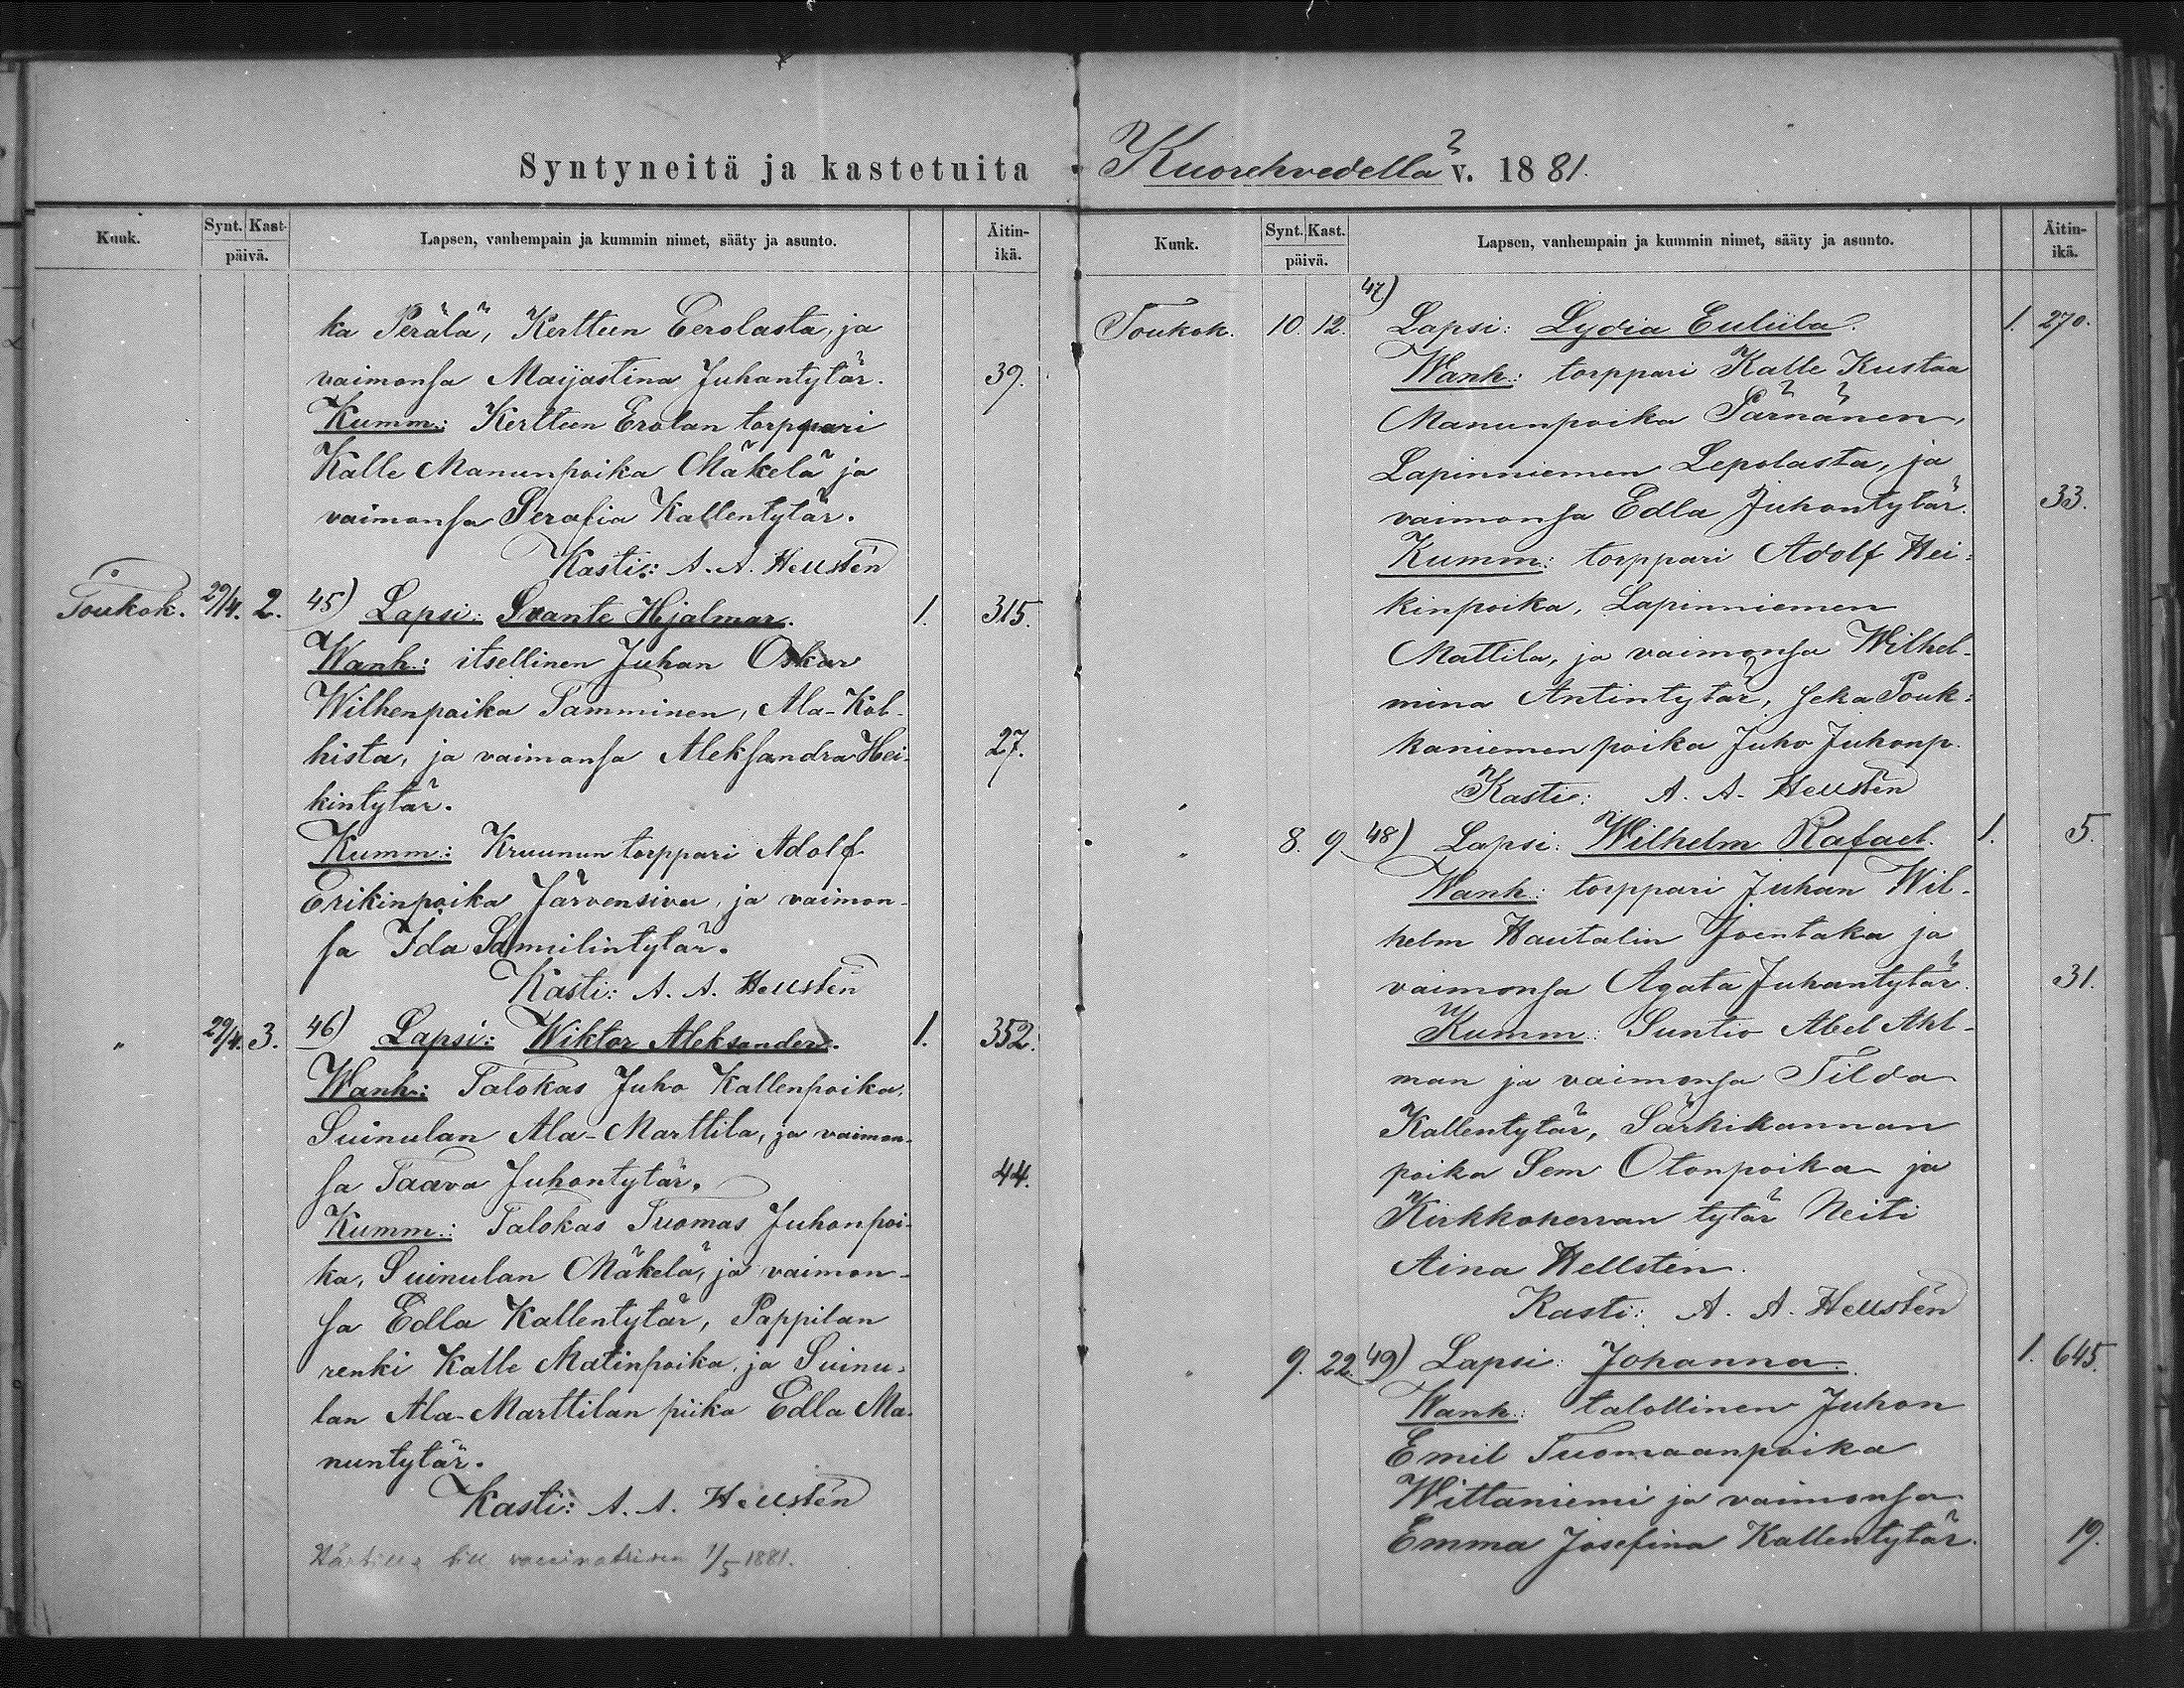 Syntyneitä ja kastetuita
Kuuk. Synt. Kast. päivä. Lapsen, vanhempain ja kummin nimet, sääty ja asunto. Äitin-ikä.
ka Perälä, Kertteen Eerolasta, ja
vaimonsa Maijastina Juhantytär. 39.
Kumm.: Kertteen Erolan torppari
Kalle Manunpoika Mäkelä ja
vaimonsa Serafia Kallentytär.
Kasti: A. A. Hellstén
Toukok. 29/4. 2. 45) Lapsi: Svante Hjalmar. 1. 315.
Wanh.: itsellinen Juhan Oskar
Wilhenpoika Tamminen, Ala-Kol-
hista, ja vaimonsa Aleksandra Hei- 27.
kintytär.
Kumm.: Kruunun torppari Adolf
Erikinpoika Järvensivu, ja vaimon-
sa Ida Samuilintytär.
Kasti: A. A. Hellstén
" 29/4. 3. 46) Lapsi: Wiktor Aleksander. 1. 352.
Wanh.: Talokas Juho Kallenpoika,
Suinulan Ala-Marttila, ja vaimon-
sa Taava Juhontytär. 44.
Kumm.: Talokas Tuomas Juhonpoi-
ka, Suinulan Mäkelä, ja vaimon-
sa Edla Kallentytär, Pappilan
renki Kalle Matinpoika, ja Suinu-
lan Ala-Marttilan piika Edla Ma-
nuntytär.
Kasti: A. A. Hellstén
till 1/5 1881.
Kuorehvedellä v. 1881.
Kuuk. Synt. Kast. päivä. Lapsen, vanhempain ja kummin nimet, sääty ja asunto. Äitin-ikä.
47)
Toukok. 10. 12. Lapsi: Lydia Euliila. 1. 270.
Wanh.: torppari Kalle Kustaa
Manunpoika Pärnänen,
Lapinniemen Lepolasta, ja
vaimonsa Edla Juhontytär. 33.
Kumm: torppari Adolf Hei-
kinpoika, Lapinniemen
Mattila, ja vaimonsa Wilhel-
mina Antintytär, sekä Pouk-
kaniemen poika Juho Juhonp.
Kasti: A. A. Hellstén
" 8. 9. 48) Lapsi: Wilhelm Rafael. 1. 5.
Wanh: torppari Juhan Wil-
helm Hautalin Joentaka ja
vaimonsa Agata Juhantytär. 31.
Kumm: Suntio Abel Ahl-
man ja vaimonsa Tilda
Kallentytär, Särkikannan
poika Sem Otonpoika ja
Kirkkoherran tytär Neiti
Aina Hellstén.
Kasti: A. A. Hellstén
" 9. 22. 49) Lapsi: Johanna. 1. 645.
Wanh.: talollinen Juhon
Emil Tuomaanpoika
Wittaniemi ja vaimonsa
Emma Josefina Kallentytär. 19.